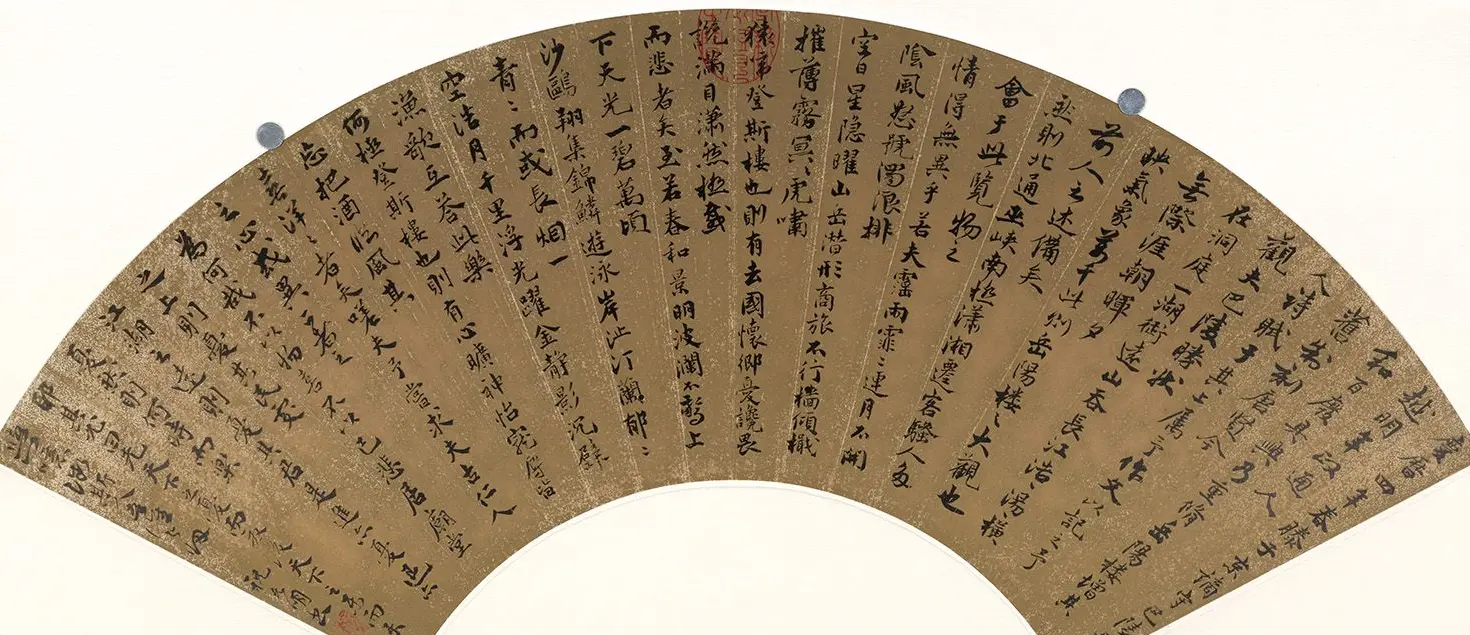 慶曆四年春滕子京謫守巴陵
越明年政通人
和百廢具興乃重脩岳陽樓增其
舊制刻唐賢今
人詩賦于其上属予作文以記之予
觀夫巴陵勝狀
在洞庭一湖銜遠山吞長江浩、湯、橫
無際涯朝暉夕
映氣象萬千此則岳陽樓之大觀也
前人之述備矣
然則北通巫峽南極瀟湘遷客騷人多
會于此覽物之
情得無異乎若夫霪雨霏〻連月不開
陰風怒號濁浪排
空日星隐曜山岳潜形商旅不行檣傾檝
摧薄霧冥〻虎嘯
猿啼登斯樓也則有去國懷鄉憂讒畏
譏滿目瀟然極感
而悲者矣至若春和景明波瀾不驚上
下天光一碧萬頃
沙鷗翔集錦鱗遊泳岸芷汀蘭郁〻
青〻而或長烟一
空浩月千里浮光躍金靜影沉璧
漁歌互答此樂
何極登斯樓也則有心曠神怡寵辱皆
忘把酒臨風其
喜洋〻者矣嗟夫予嘗求夫古仁人
之心或異二者之
為何哉不以物喜不以己悲居廟堂
之上則憂其民處
江湖之遠則憂其君是進亦憂退亦
憂然則何時而樂
耶其必曰先天下之憂而憂後天下之樂而樂
與噫微斯人吾誰與歸
祝允明書